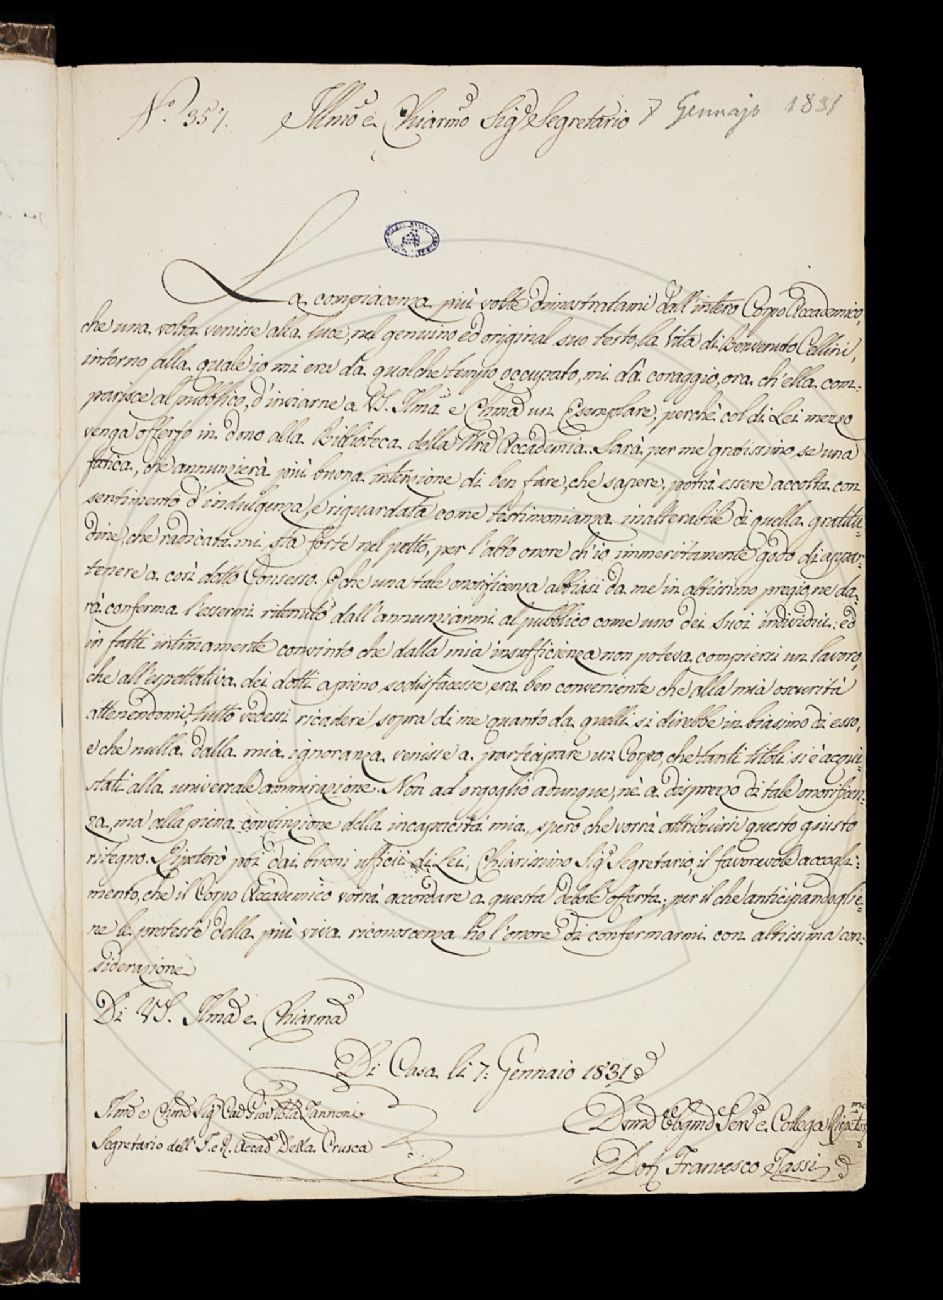 N.° 357. Illmo e Chiarmo Sigr Segretario 7 Gennajo 1831
La compiacenza più volte dimostratami dall'intero Corpo Accademico,
che una volta venisse alla luce, nel genuino ed original suo testo, la Vita di Benvenuto Cellini,
intorno alla quale io mi era da qualche tempo occupato, mi dà coraggio, ora ch'ella com-
parisce al pubblico, d'inviarne a VS. Illma e Chma un Esemplare, perchè col di Lei mezzo
venga offerto in dono alla Biblioteca della Accademia. Sarà per me gratissimo, se una
fatica, che annunzierà più buona intenzione di ben fare, che sapere, potrà essere accolta con
sentimento d'indulgenza, e riguardata come testimonianza inalterabile di quella gratitu-
dine, che radicata mi sta forte nel petto, per l'alto onore ch'io immeritamente godo di appar-
tenere a così dotto Consesso. E che una tale onorificenza abbiasi da me in altissimo pregio, ne da-
rà conferma l'essermi ritenuto dall'annunziarmi al pubblico come uno dei suoi individui: ed
in fatti intimamente convinto che dalla mia insufficienza non poteva compiersi un lavoro,
che all'espettativa dei dotti a pieno sodisfacesse, era ben conveniente che alla mia oscurità
attenendomi, tutto vedessi ricadere sopra di me quanto da quelli si direbbe in biasimo di esso,
e che nulla dalla mia ignoranza venisse a participare un Corpo, che tanti titoli si è acqui-
stati alla universale ammirazione. Non ad orgoglio adunque, nè a disprezzo di tale onorificen-
za, ma alla piena convinzione della incapacità mia, spero che vorrà attribuirsi questo giusto
ritegno. Ripeterò poi dai buoni ufficii di Lei, Chiarissimo Sigr Segretario, il favorevole accogli-
mento, che il Corpo Accademico vorrà accordare a questa debole offerta; per il che anticipandogli-
ne le proteste della più viva riconoscenza ho l'onore di confermarmi con altissima con-
siderazione
Di VS. Illma e Chiarma
Di Casa li 7. Gennaio 1831
Illmo e Chmo Sigr Cav Giov Zannoni
Segretario dell'I. e R. Accad Della Crusca
Devmo Obgmo Serv e Collega
Dott Francesco Tassi